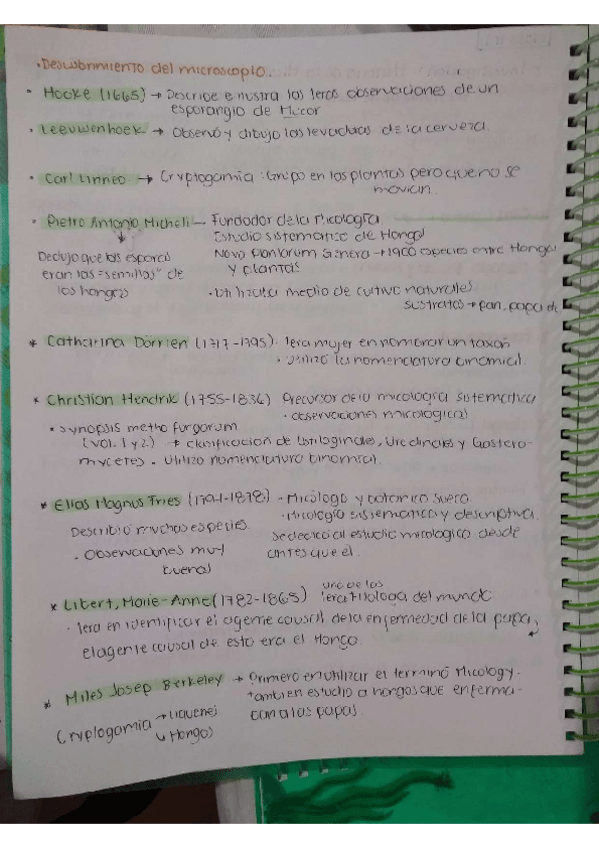 • Descubrimiento del microscopio.
• Hooke (1665) → Describe e ilustra las 1eras observaciones de un
esporangio de Mucor
• Leeuwenhoek → Observó y dibujo las levaduras de la cerveza.
• Carl Linneo → Cryptogamia: Grupo en las plantas pero que no se
movian.
• Pietro Antonio Micheli — Fundador de la Micología
Estudio sistematico de Hongos
Nova Plantarum Genera → 1900 especies entre Hongos
y plantas
Dedujo que las esporas
eran las "semillas" de
los hongos
• Utilizaba medio de cultivo naturales
sustratos → pan, papa etc
* Catharina Dörrien (1717-1795) • 1era mujer en nombrar un taxón
• Utilizo la nomenclatura binomial.
* Christian Hendrik (1755-1836) Precursor de la micología sistematica
• observaciones micologicas
• Synopsis metho fungorum
(Vol. 1 y 2) → clasificacion de Ustilaginales, Uredinales y Gastero-
myceres. Utilizo nomenclatura binomial.
* Elias Magnus Fries (1794-1878) • Micólogo y botanico sueco.
• Micología sistematica y descriptiva.
Describió muchas especies
se dedico al estudio micologico desde
antes que el.
• Observaciones muy
buenas
* Libert, Marie-Anne (1782-1865) una de las
1era fitologa del mundo
• 1era en identificar el agente causal de la enfermedad de la papa,
el agente causal de esto era el Hongo.
* Miles Josep Berkeley → Primero en utilizar el termino Micology.
• tambien estudio a hongos que enferma-
ban a las papas.
Cryptogamia → Liquenes
↳ Hongos